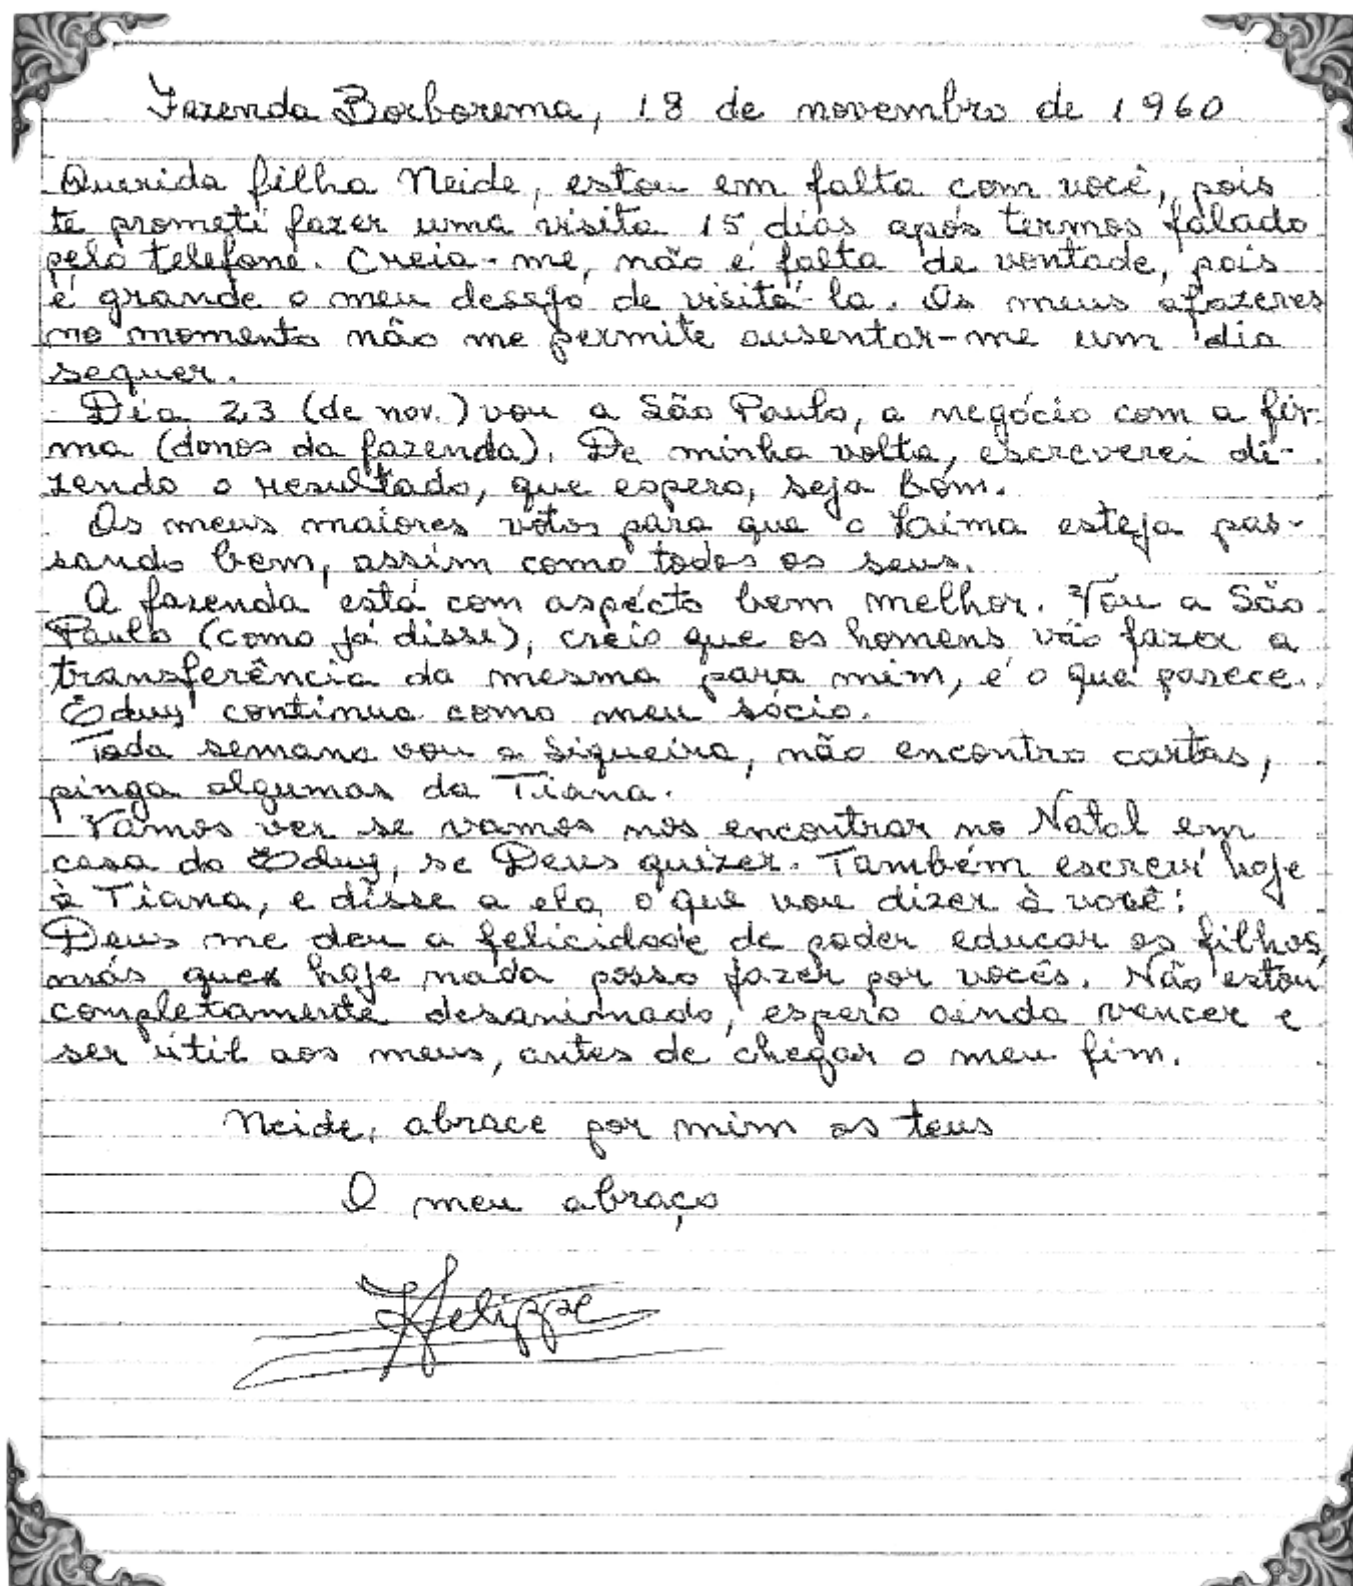 Fazenda Borborema, 18 de novembro de 1960
Querida filha Neide, estou em falta com você, pois
te prometi fazer uma visita 15 dias após termos falado
pelo telefone. Creia-me, não é falta de vontade, pois
é grande o meu desejo de visitá-la. Os meus afazeres
no momento não me permite ausentar-me um dia
sequer.
Dia 23 (de nov.) vou a São Paulo, a negócio com a fir-
ma (donos da fazenda). De minha volta, escreverei di-
zendo o resultado, que espero, seja bom.
Os meus maiores votos para que o Laima esteja pas-
sando bem, assim como todos os seus.
A fazenda está com aspécto bem melhor. Vou a São
Paulo (como já disse), creio que os homens vão fazer a
transferência da mesma para mim, é o que parece.
Eduy continua como meu sócio.
Toda semana vou a Siqueira, não encontro cartas,
pinga algumas da Tiana.
Vamos ver se vamos nos encontrar no Natal em
casa do Eduy, se Deus quizer. Também escreví hoje
à Tiana, e disse a ela o que vou dizer à você:
Deus me deu a felicidade de poder educar os filhos,
más que hoje nada posso fazer por vocês. Não estou
completamente desanimado, espero ainda vencer e
ser útil aos meus, antes de chegar o meu fim.
Neide, abrace por mim os teus
O meu abraço
Felippe